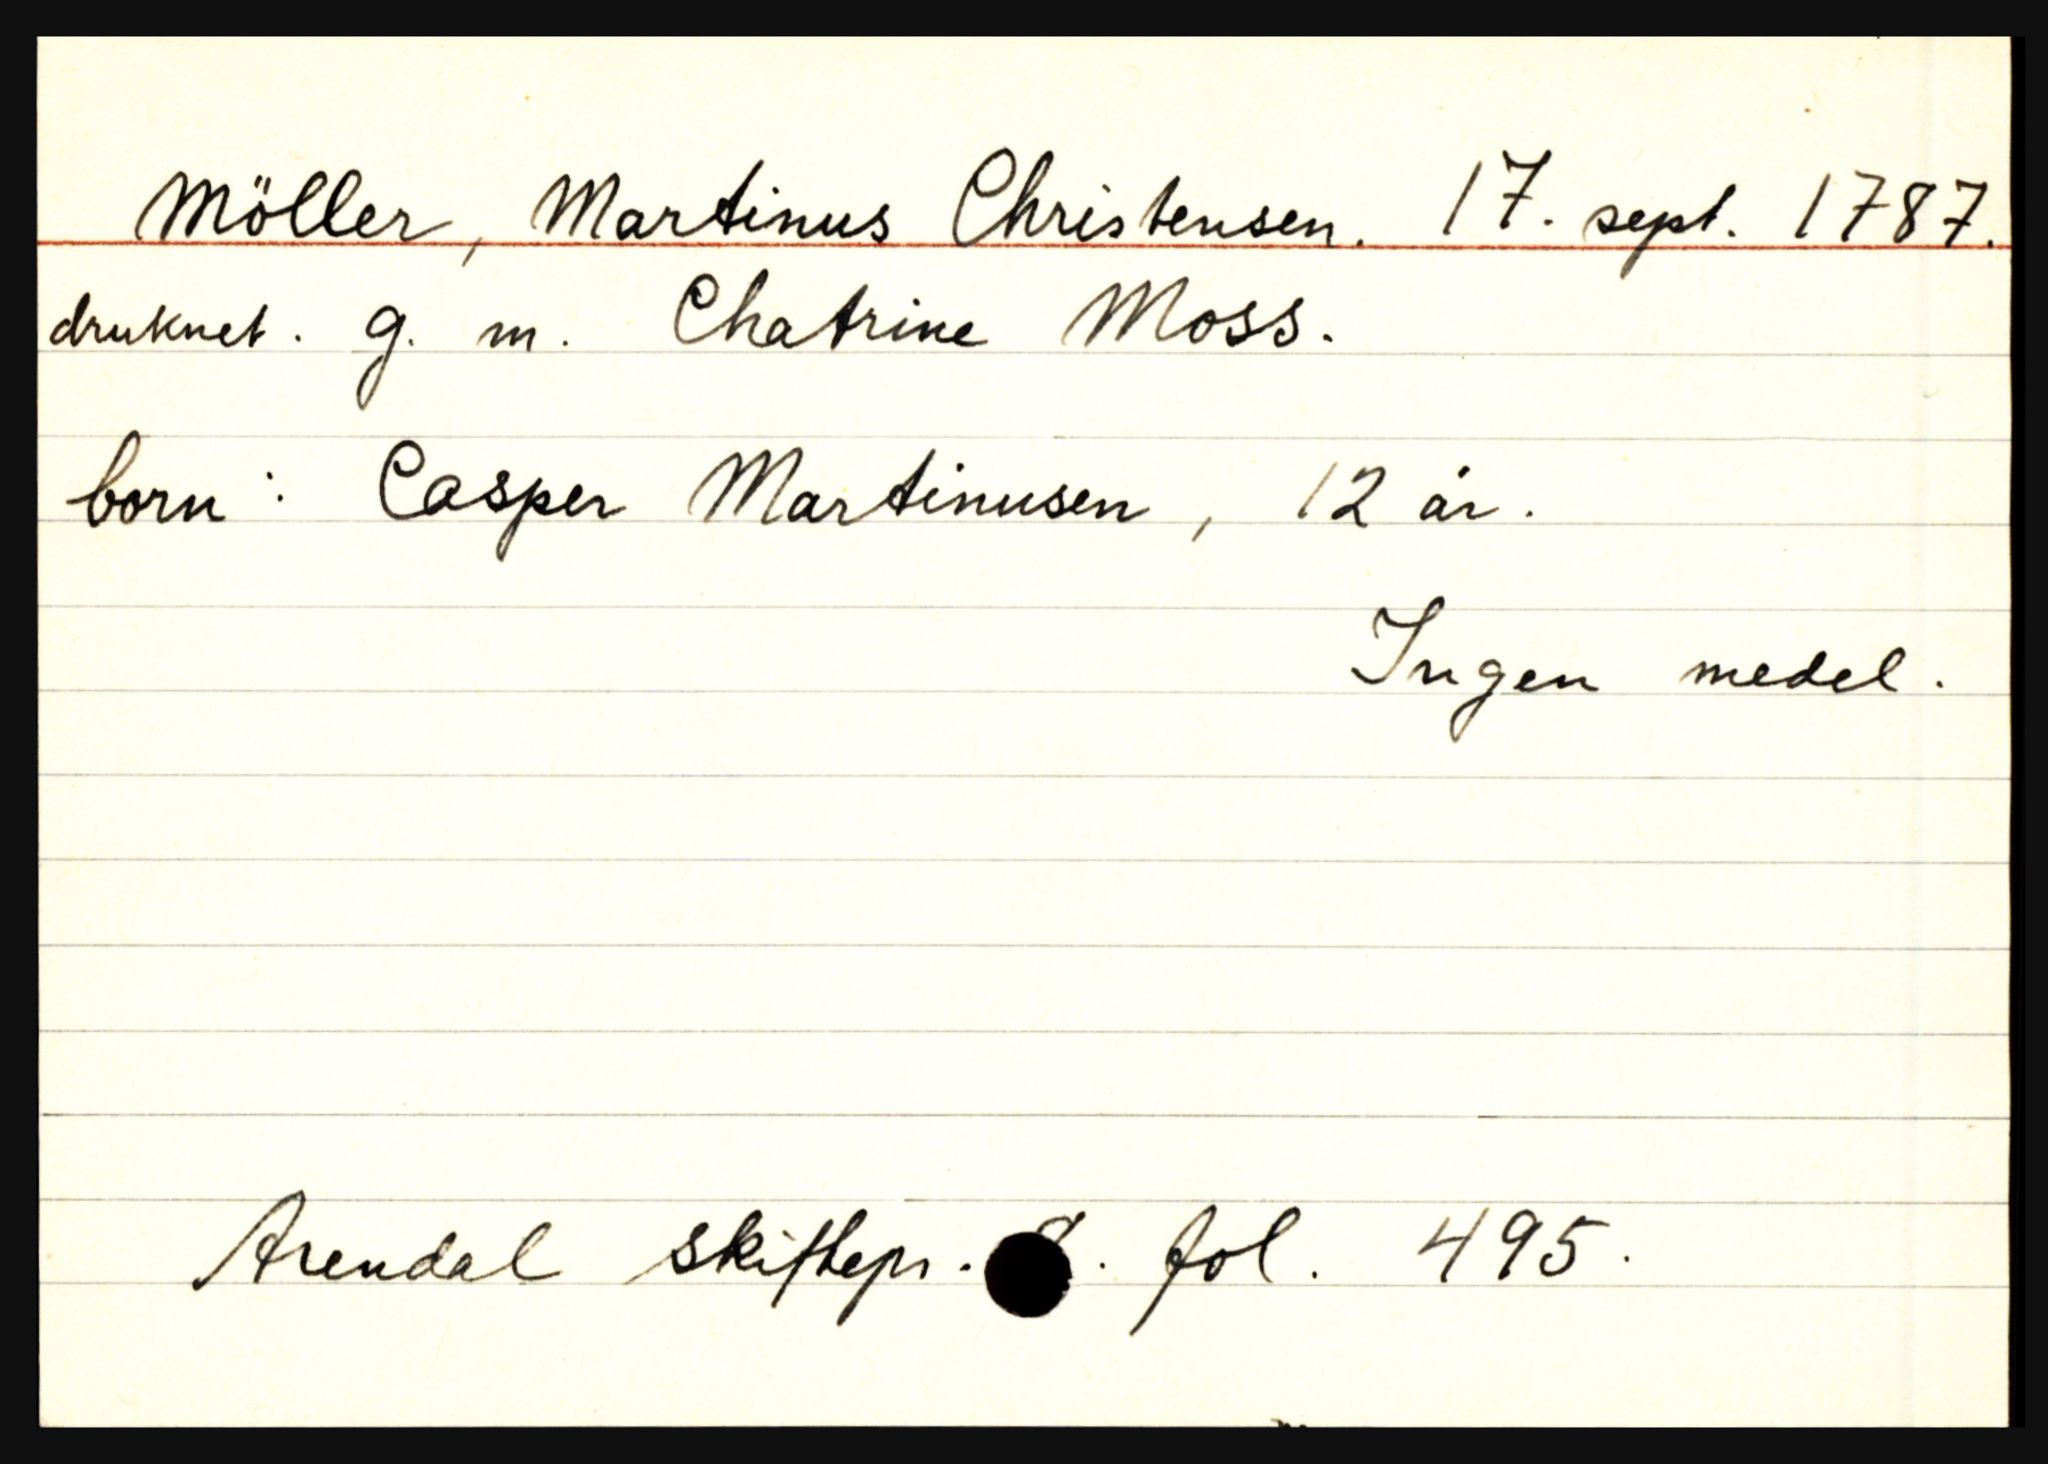 Möller, Martinus Christensen. 17. sept. 1787.
druknet. g. m. Chatrine Moss.
born: Casper Martinusen, 12 år.
Ingen medel.
Arendal skiftepr. . fol. 495.